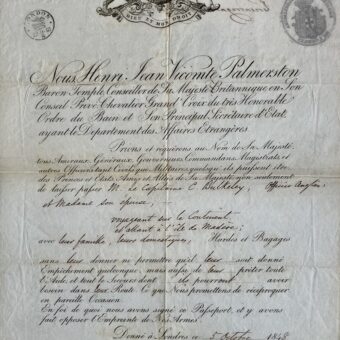 DIEU ET MON DROIT
Nous Henri Jean Vicomte Palmerston
Baron Temple Conseiller de Sa Majesté Britannique en Son
Conseil Privé Chevalier Grand Croix du très Honorable
Ordre du Bain et Son Principal Sécrétaire d'Etat
ayant le Departement des Affaires Etrangères
Prions et requérons au Nom de Sa Majesté
tous Amiraux Généraux, Gouverneurs Commandans Magistrats et
autres Officiers tant Civils que Militaires
des Princes et Etats Amis et Alliés de Sa Majesté non seulement
de laisser passer M. le Capitaine C. Bulkeley, Officier Anglais,
et Madame son épouse,
voyageant sur le Continent
et allant à l'Ile de Madere,
avec leur famille, leurs domestiques, Hardes et Bagages
sans leur donner ne permettre qu'il leur soit donné
Empêchement quelconque mais aussi de leur prêter toute
l'Aide et tout le Secours dont ils pourront avoir
besoin dans leur Route Ce que Nous promettons de réciproquer
en pareille Occasion.
En foi de quoi nous avons signé ce Passeport, et y avons
fait apposer l'Empreinte de Nos Armes
Donné à Londres ce 5 Octobre 1848